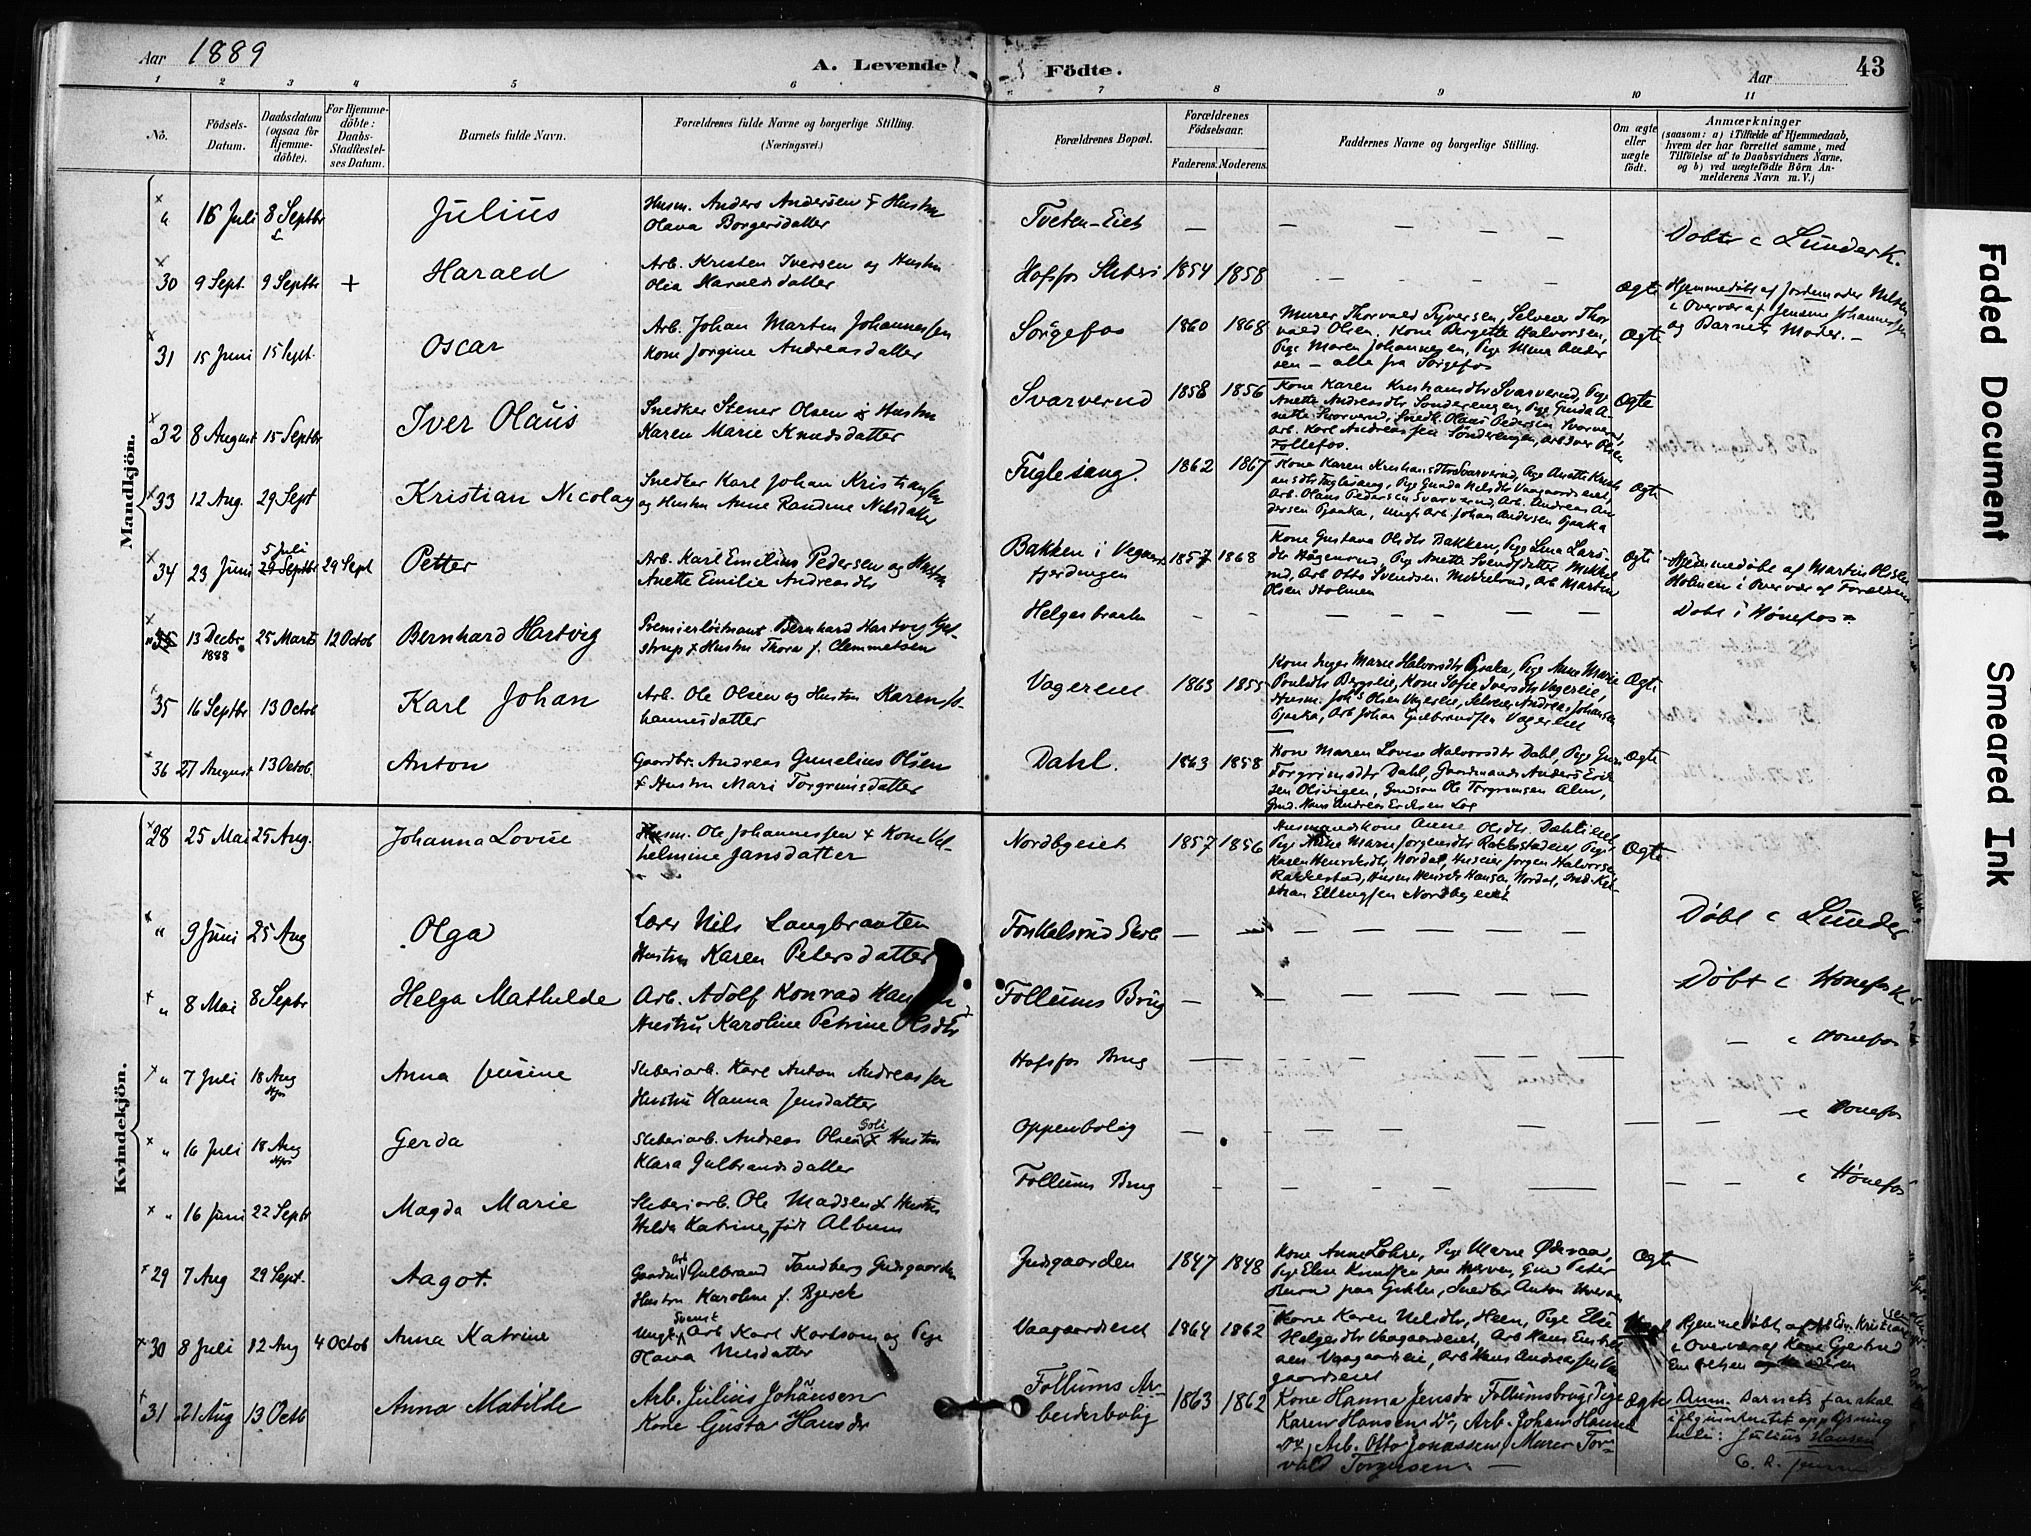 Aar 1889
A. Levende Födte.
Aar
43
1 2 3 4 5 6 7 8 9 10 11
No.
Födsels-
Datum.
Daabsdatum
(ogsaa for
Hjemme-
döbte).
For Hjemme-
döbte:
Daabs-
Stadfæstel-
ses Datum.
Barnets fulde Navn.
Forældrenes fulde Navne og borgerlige Stilling.
(Næringsvei.)
Forældrenes Bopæl.
Forældrenes
Födselsaar.
Faderens. Moderens.
Faddernes Navne og borgerlige Stilling.
Om ægte
eller
uægte
födt.
Anmærkninger
(saasom: a) i Tilfælde af Hjemmedaab,
hvem der har forrettet samme, med
Tilföielse af to Daabsvidners Navne,
og b) ved uægtefödte Börn An-
melderens Navn m. V.)
Mandkjön.
" 16 Juli 8 Septbr Julius
Husm. Anders Andersen & Hustru
Olava Borgersdatter
Tveten-Eiet — — — — —
Døbt i Lunder K.
30 9 Sept. 9 Septbr + Harald
Arb. Kristen Iversen og Hustru
Olia Haraldsdatter
Hofsfos Sliberi 1854 1858 — — — — Ægte
Hjemmedøbt af Jordemoder Nilsen
i Overvær af Jensine Johannessen
og Barnets Moder. —
31 15 Juni 15 Sept. Oscar
Arb. Johan Martin Johannessen
Kone Jorgine Andreasdatter
Sørgefos 1860 1868
Murer Thorvald Syversen, Selveier Thor
vald Olsen, Kone Bergitte Halvorsen,
Pige Maren Johannesen, Pige Mina Ander
sen — alle fra Sørgefos
Ægte
32 8 August 15 Septbr Iver Olaus
Snedker Stener Olsen & Hustru
Karen Marie Knudsdatter
Svarverud 1858 1856
Kone Karen Kristiansdtr Svarverud, Pige
Anette Andreasdtr Sonderengen, Pige Gunda A-
nette Svarverud, Snedk. Olaus Pedersen Svarverud,
Arb. Karl Andreassen Sønderengen, Arb Iver Olsen
Follefos.
Ægte
33 12 Aug. 29 Sept Kristian Nicolay
Snedker Karl Johan Kristiansen
og Hustru Anne Randine Nilsdatter
Fuglesang. 1862 1867
Kone Karen Kristiansdtr Svarverud, Pige Anette Kristi
ansdtr Fuglesang, Pige Gunda Nilsdtr Vaagaardseiet,
Arb. Olaus Pedersen Svarverud, Arb. Andreas An
dersen Gjaaka, Ungk Arb. Johan Andersen Gjaaka
Ægte
34 23 Juni 5 Juli 29 Septbr 29 Sept Petter
Arb. Karl Emilius Pedersen og Hustru
Anette Emilie Andreasdtr
Bakken i Vegaards
fjerdingen 1857 1868
Kone Gustava Olsdtr Bakken, Pige Lina Lars-
dtr Høgenrud, Pige Anette Svendsdatter Mikkel
rud, Arb Otto Svendsen Mikkelrud, Arb Martin
Olsen Holmen
Ægte
Hjemmedøbt af Martin Olsen
Holmen i Overvær af Forældrene
" 35 13 Decbr. 1888 25 Marts 12 Octob Bernhard Hartvig
Premierløitnant Bernhard Hartvig Gel-
strup & Hustru Thora f. Clemmetsen
Helgesbraaten — — — — —
Døbt i Hønefos
35 16 Septbr 13 Octob Karl Johan
Arb. Ole Olsen og Hustru Karen Jo
hannesdatter
Vagereiet 1863 1855
Kone Inger Marie Halvorsdtr Gjaaka, Pige Anne Marie
Poulsdtr Bergslie, Kone Sofie Iversdtr Vagerlie,
Husm. Johs Olsen Vagerlie, Selveier Andreas Johansen
Gjaaka, Arb Johan Gulbrandsen Vagereiet
Ægte
36 27 August 13 Octob. Anton
Gaardbr. Andreas Gunelius Olsen
& Hustru Mari Torgrimsdatter
Dahl. 1863 1858
Kone Maren Lovise Halvorsdtr Dahl, Pige Guri
Torgrimsdtr Dahl, Gaardmands Anders Erik
sen Olsvigen, Gmdsøn Ole Torgrimsen Alm,
Gmd. Hans Andreas Eriksen Log
Ægte
Kvindekjön.
28 25 Mai 25 Aug. Johanna Lovise
Husm. Ole Johannessen & Kone Vil-
helmine Jansdatter
Nordbyeiet 1857 1856
Husmandskone Anne Olsdtr. Dæhlieiet,
Pige Anne Marie Jorgensdtr Rakkestadeiet, Pige
Karen Henriksdtr Nordal, Huseier Jorgen Halvorsen
Rakkestad, Husm Henrik Hansen Nordal, Gmd. Kri-
stian Ellingsen Nordbyeiet
Ægte
" 9 Juni 25 Aug Olga
Lærer Nils Langbraaten
Hustru Karen Petersdatter
Fonkelsrud Skole — — — — —
Døbt i Lunder
" 8 Mai 8 Septbr Helga Mathilde
Arb. Adolf Konrad Hansen
Hustru Karoline Petrine Olsdtr
Follums Brug — — — — —
Døbt i Hønefos K
" 7 Juli 18 Aug Hfos Anna Jensine
Sliberiarb. Karl Anton Andreassen
Hustru Hanna Jensdatter
Hofsfos Brug — — — — —
— i Hønefos
" 16 Juli 18 Aug Hfos Gerda
Sliberiarb. Andreas Olsen Soli & Hustru
Klara Gulbrandsdatter
Oppenbolig — — — — —
— i Hønefos
" 16 Juni 22 Septr Magda Marie
Sliberiarb. Ole Madsen & Hustru
Hilda Katrine, født Album
Follums Brug — — — — —
i Hønefos
29 7 Aug 29 Sept. Aagot.
Gaardm Arb Gulbrand Tandberg Gudsgaarden
Hustru Karoline f. Bjerck
Gudsgaarden 1847 1848
Kone Anne Lohre, Pige Marie Ødevaa,
Pige Elise Knudsen paa Hverven, Gmd Peter
Ruud paa Gihle, Snedker Anton Hveraa
Ægte
30 8 Juli 12 Aug 4 Octob Anna Katrine
Ungk Svensk Arb Karl Karlson og Pige
Olava Nilsdatter
Vaagaardseiet 1864 1862
Kone Karen Nilsdtr, Heen, Pige Elise
Helgesdtr Vaagaardeiet, Arb Hans Engebret
sen Vaagaardeie, Arb Hans Andreassen Va
gaardseiet
Hjemmedøbt af Edv. Kristian
i Overvær af Kone Gjertrud
31 21 Aug 13 Octb Anna Matilde
Arb. Julius Johansen
Kone Gusta Hansdr
Follums Ar-
beiderbolig 1863 1862
Kone Hanna Jensdr Follumsbrug, Pige
Karen Hansen Do, Arb. Johan Hansen
Do, Arb. Otto Jonassen, Murer Tor-
vald Torgersen. —
Ægte
Anm. Barnets far skal
ifølge indhentet opplysning
hete: Julius Hansen
Faded Document
Smeared Ink